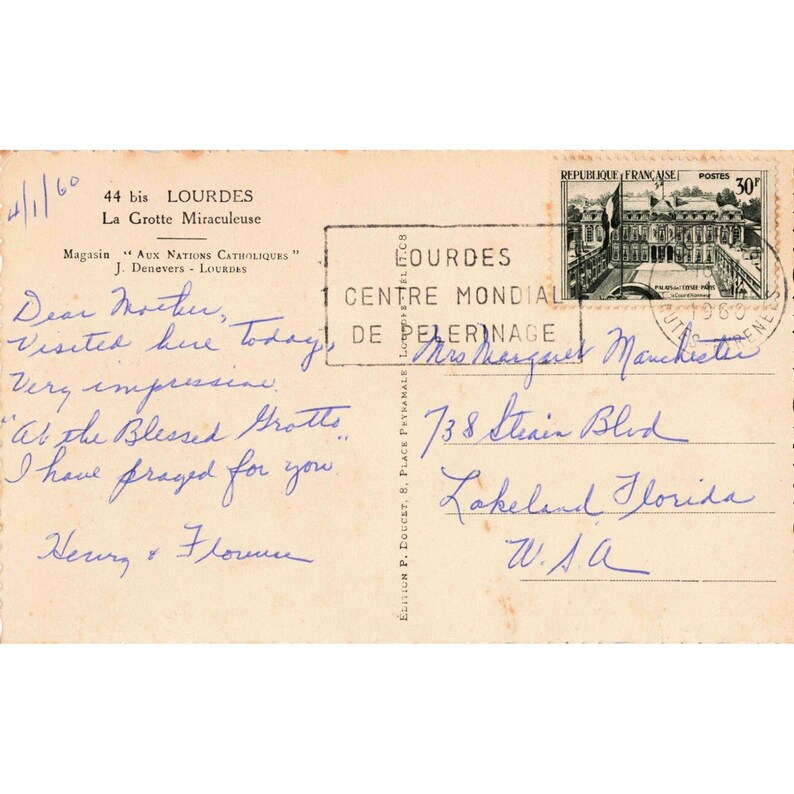 4/1/60
44 bis LOURDES
La Grotte Miraculeuse
Magasin "AUX NATIONS CATHOLIQUES"
J. Denevers - LOURDES
Dear Mother,
Visited here today,
Very impressive.
"At the Blessed Grotto"
I have prayed for you
Henry & Florence
EDITION P. DOUCET, 8, PLACE PEYRAMALE LOURDES - TÉL. 17.08
LOURDES
CENTRE MONDIAL
DE PELERINAGE
REPUBLIQUE FRANÇAISE
POSTES
30F
PALAIS de l'ELYSÉE-PARIS
la Cour d'Honneur
1960
HTES PYRENEES
Mrs Margaret Manchester
738 Blvd
Lakeland, Florida
U.S.A